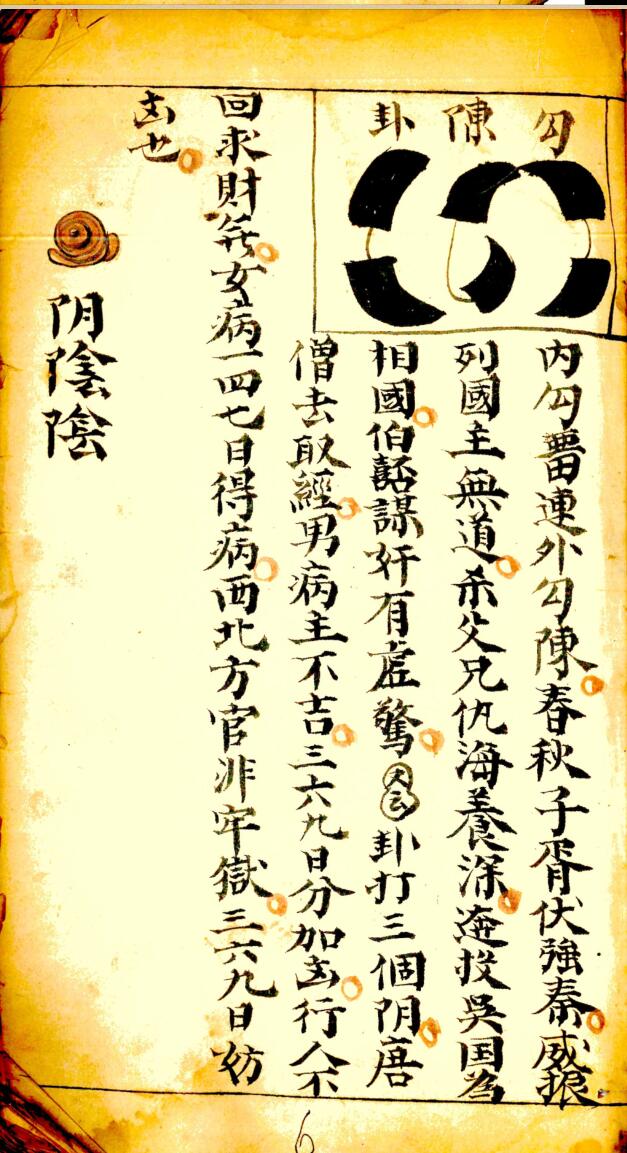 勾陳卦
内勾連外勾陳春秋子胥伏強秦威振
列國主無道杀父兄仇海養深逩投吳国為
相國伯嚭謀奸有虚驚又云卦打三個阴唐
僧去取經男病主不吉三六九日分加㐫行人不
回求財無女病一四七日得病西北方官非牢獄三六九日妨
㐫也
阴陰陰
6